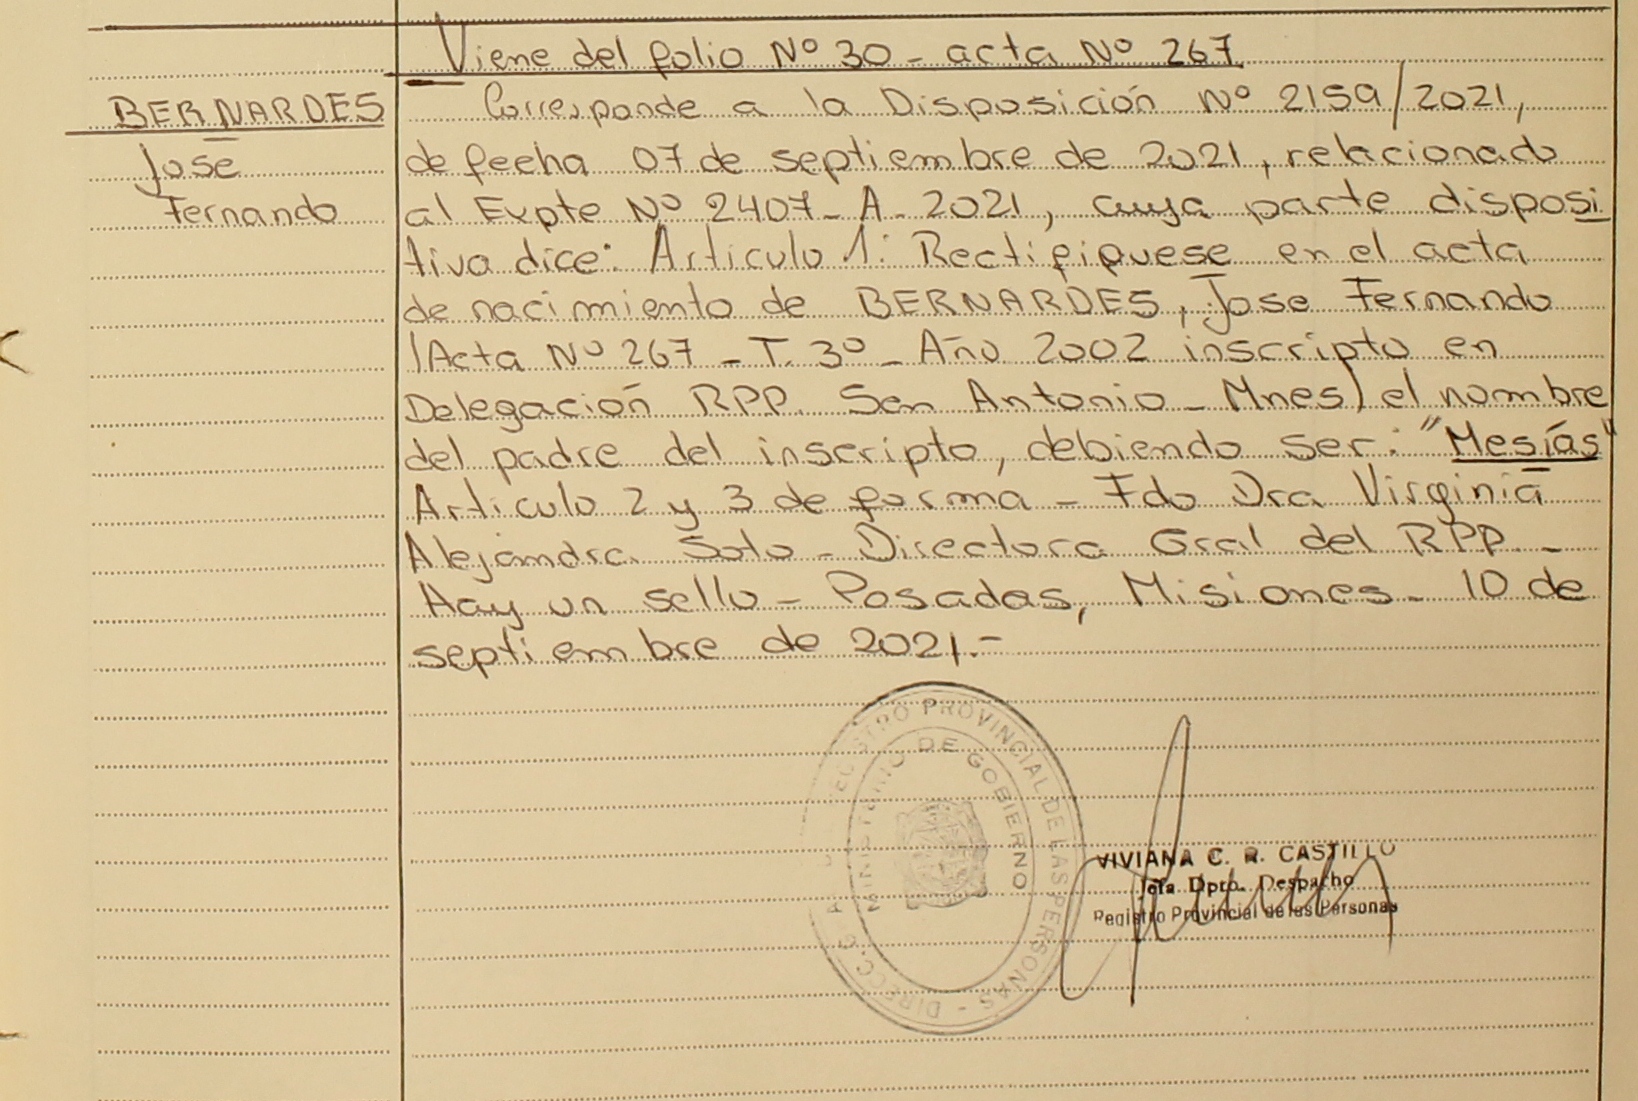 Viene del folio Nº 30 - acta Nº 267
BERNARDES
Jose
Fernando
Corresponde a la Disposición Nº 2159/2021,
de fecha 07 de septiembre de 2021, relacionado
al Expte Nº 2407-A-2021, cuya parte disposi
tiva dice: Articulo 1: Rectifiquese en el acta
de nacimiento de BERNARDES, Jose Fernando
(Acta Nº 267 - T. 3º - Año 2002 inscripto en
Delegación RPP. San Antonio - Mnes) el nombre
del padre del inscripto, debiendo ser: "Mesías"
Articulo 2 y 3 de forma - Fdo Dra Virginia
Alejandra Soto - Directora Gral del RPP. -
Hay un sello - Posadas, Misiones - 10 de
septiembre de 2021.-
PROVINCIAL DE LAS PERSONAS - DIRECC. G
MINISTERIO DE GOBIERNO
VIVIANA C. R. CASTILLO
Jefa Dpto. Despacho
Registro Provincial de las Personas